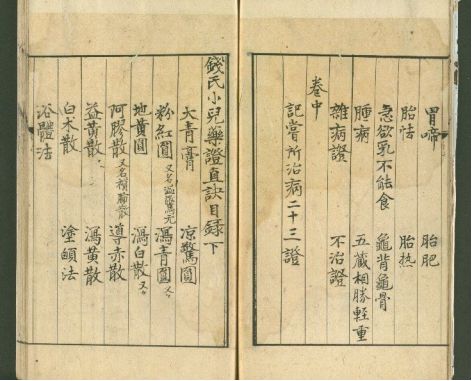 胃啼　胎肥
胎怯　胎熱
急欲乳不能食　龜背龜骨
腫病　五藏相勝輕重
雜病證　不治證
卷中
記嘗所治病二十三證
錢氏小兒藥證直訣目錄下
大青膏　涼驚圓
粉紅圓又名温驚元　瀉青圓又
地黄圓　瀉白散又
阿膠散又名補肺散　導赤散
益黄散又　瀉黄散
白朮散　塗顖法
浴體法